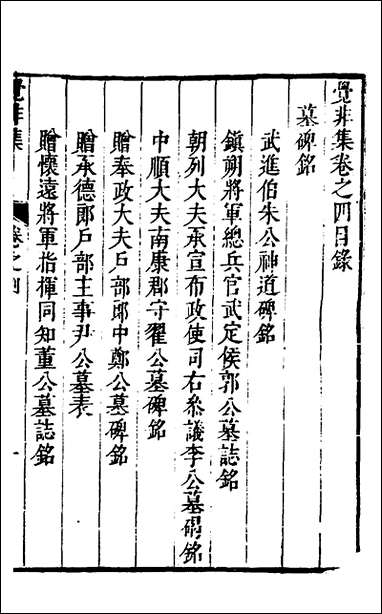 覺非集卷之四目錄
墓碑銘
武進伯朱公神道碑銘
鎮朔將軍總兵官武定侯郭公墓誌銘
朝列大夫承宣布政使司右叅議李公墓碣銘
中順大夫南康郡守翟公墓碑銘
贈奉政大夫戶部郎中鄭公墓碑銘
贈承德郎戶部主事尹公墓表
贈懷遠將軍指揮同知董公墓誌銘
覺非集
卷之四